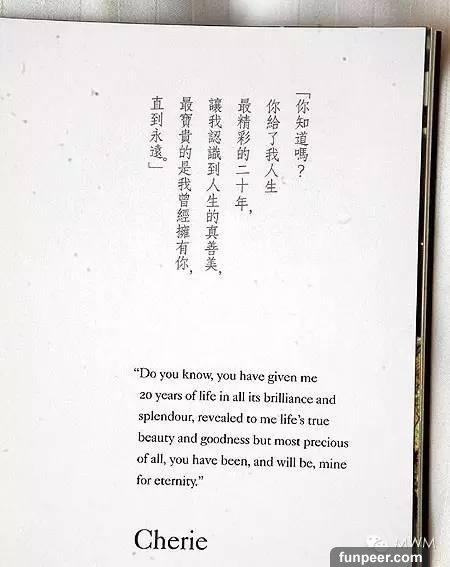 「你知道嗎？
你給了我人生
最精彩的二十年，
讓我認識到人生的真善美，
最寶貴的是我曾經擁有你，
直到永遠。」
“Do you know, you have given me
20 years of life in all its brilliance and
splendour, revealed to me life’s true
beauty and goodness but most precious
of all, you have been, and will be, mine
for eternity.”
Cherie
MWM
funpeer.com